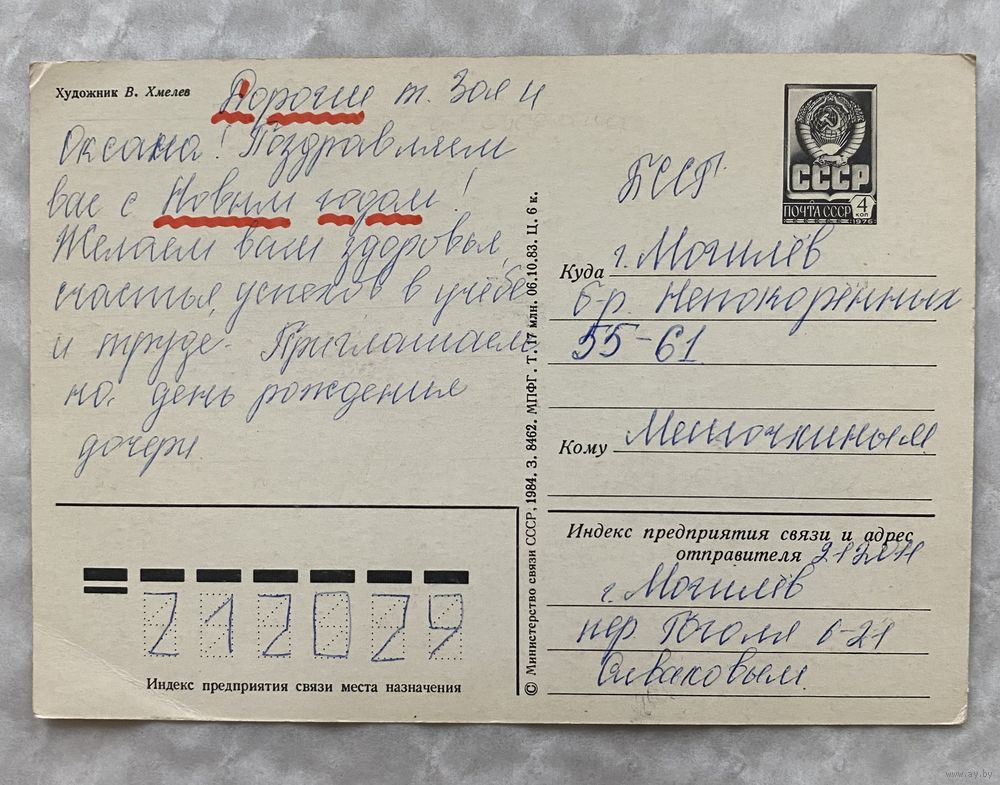 Художник В. Хмелев
Дорогие т. Зоя и
Оксана! Поздравляем
вас с Новым годом!
Желаем вам здоровья,
счастья, успехов в учёбе
и труде. Приглашаем
на день рождения
дочери.
СССР
ПОЧТА СССР
4 коп
1976
БССР
Куда г. Могилёв
б-р. Непокорённых
55-61
Кому Мешочкиным
Индекс предприятия связи и адрес
отправителя
г. Могилёв
пер. Гоголя 6-21
212029
Индекс предприятия связи места назначения
© Министерство связи СССР, 1984. З. 8462. МПФГ. Т. 17 млн. 06.10.83. Ц. 6 к.
www.ay.by